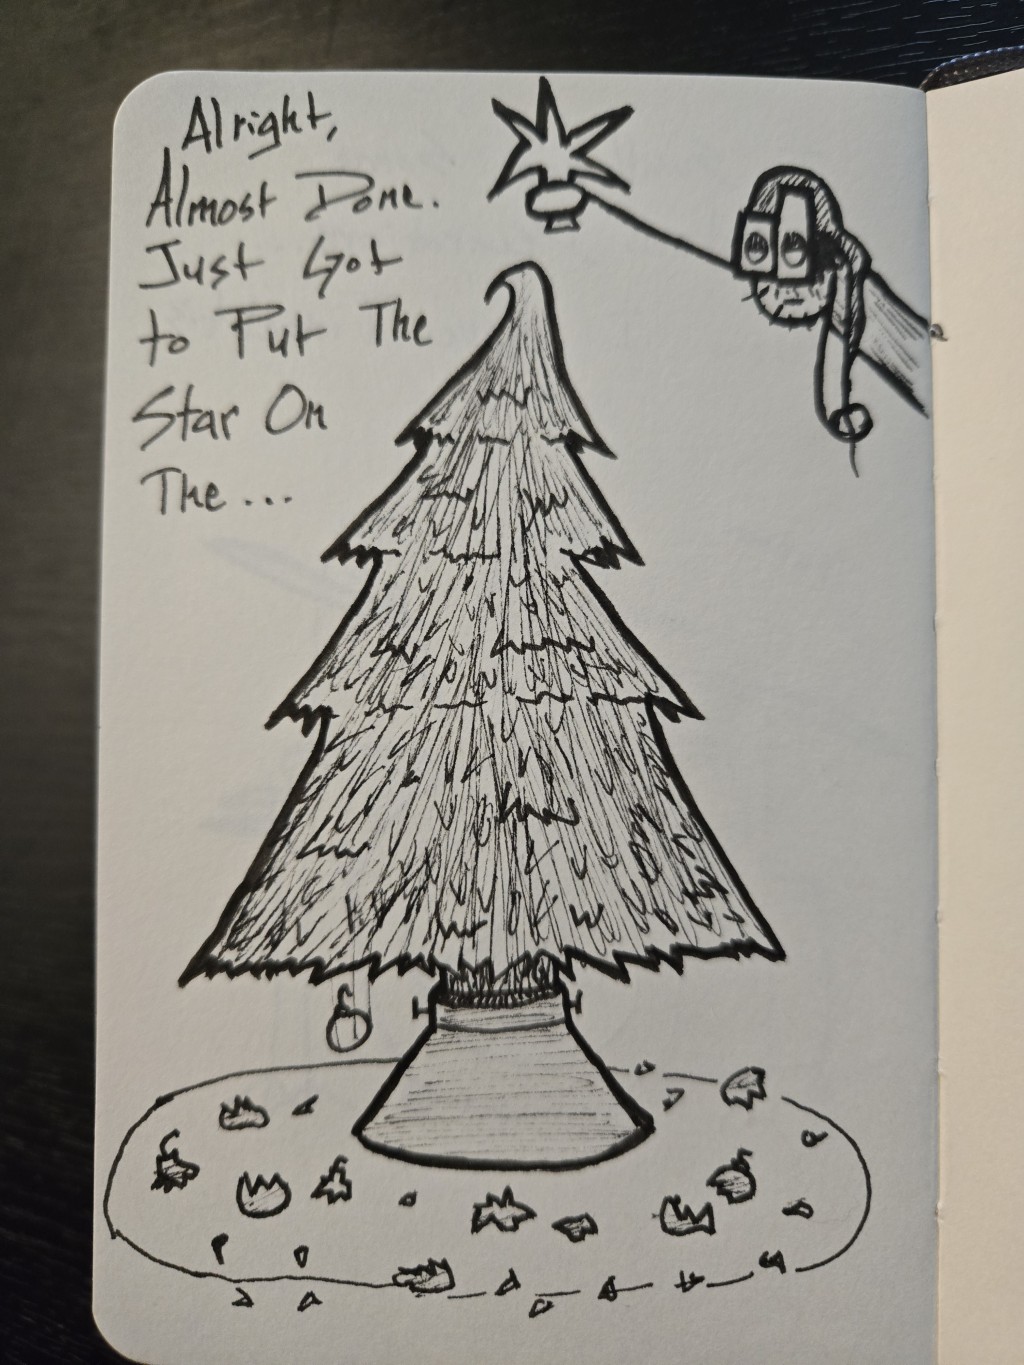 Alright,
Almost Done.
Just Got
to Put The
Star On
The...